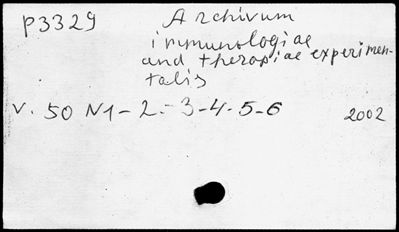 P3329 Archivum
immunologiae
and therapiae experimen-
talis
V. 50 N1-2-3-4-5-6 2002